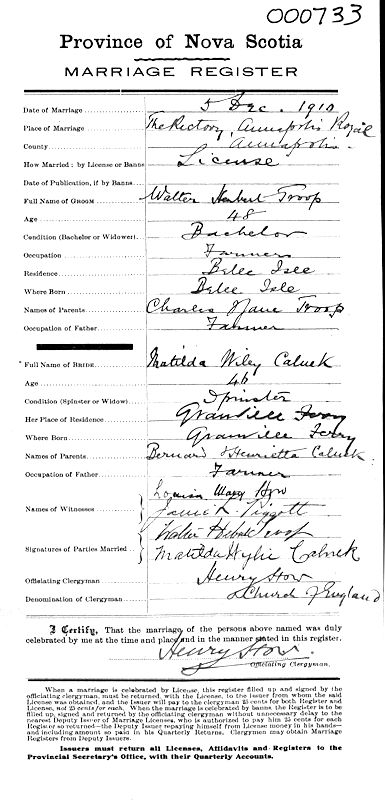 000733
Province of Nova Scotia
MARRIAGE REGISTER
Date of Marriage 5 Dec. 1910
Place of Marriage The Rectory, Annapolis Royal
County Annapolis.
How Married: by License or Banns License
Date of Publication, if by Banns
Full Name of GROOM Walter Herbert Troop
Age 48
Condition (Bachelor or Widower) Bachelor
Occupation Farmer
Residence Belle Isle
Where Born Belle Isle
Names of Parents Charles & Jane Troop
Occupation of Father Farmer
Full Name of BRIDE Matilda Wiley Calnek
Age 46
Condition (Spinster or Widow) Spinster
Her Place of Residence Granville Ferry
Where Born Granville Ferry
Names of Parents Bernard & Henrietta Calnek
Occupation of Father Farmer
Names of Witnesses Louisa Mary How
Piggott
Signatures of Parties Married Walter Herbert Troop
Matilda Wylie Calnek
Officiating Clergyman Henry How
Denomination of Clergyman Church of England
I Certify, That the marriage of the persons above named was duly
celebrated by me at the time and place and in the manner stated in this register.
Henry How.
Officiating Clergyman.
When a marriage is celebrated by License, this register filled up and signed by the
officiating clergyman, must be returned, with the License, to the issuer from whom the said
License was obtained, and the Issuer will pay to the clergyman 25 cents for both Register and
License, not 25 cents for each. When the marriage is celebrated by banns, the register is to be
filled up, signed and returned by the officiating clergyman without unnecessary delay to the
nearest Deputy Issuer of Marriage Licenses, who is authorized to pay him 25 cents for each
Register so returned—the Deputy Issuer repaying himself from License money in his hands—
and including amount so paid in his Quarterly Returns. Clergymen may obtain Marriage
Registers from Deputy Issuers.
Issuers must return all Licenses, Affidavits and Registers to the
Provincial Secretary's Office, with their Quarterly Accounts.